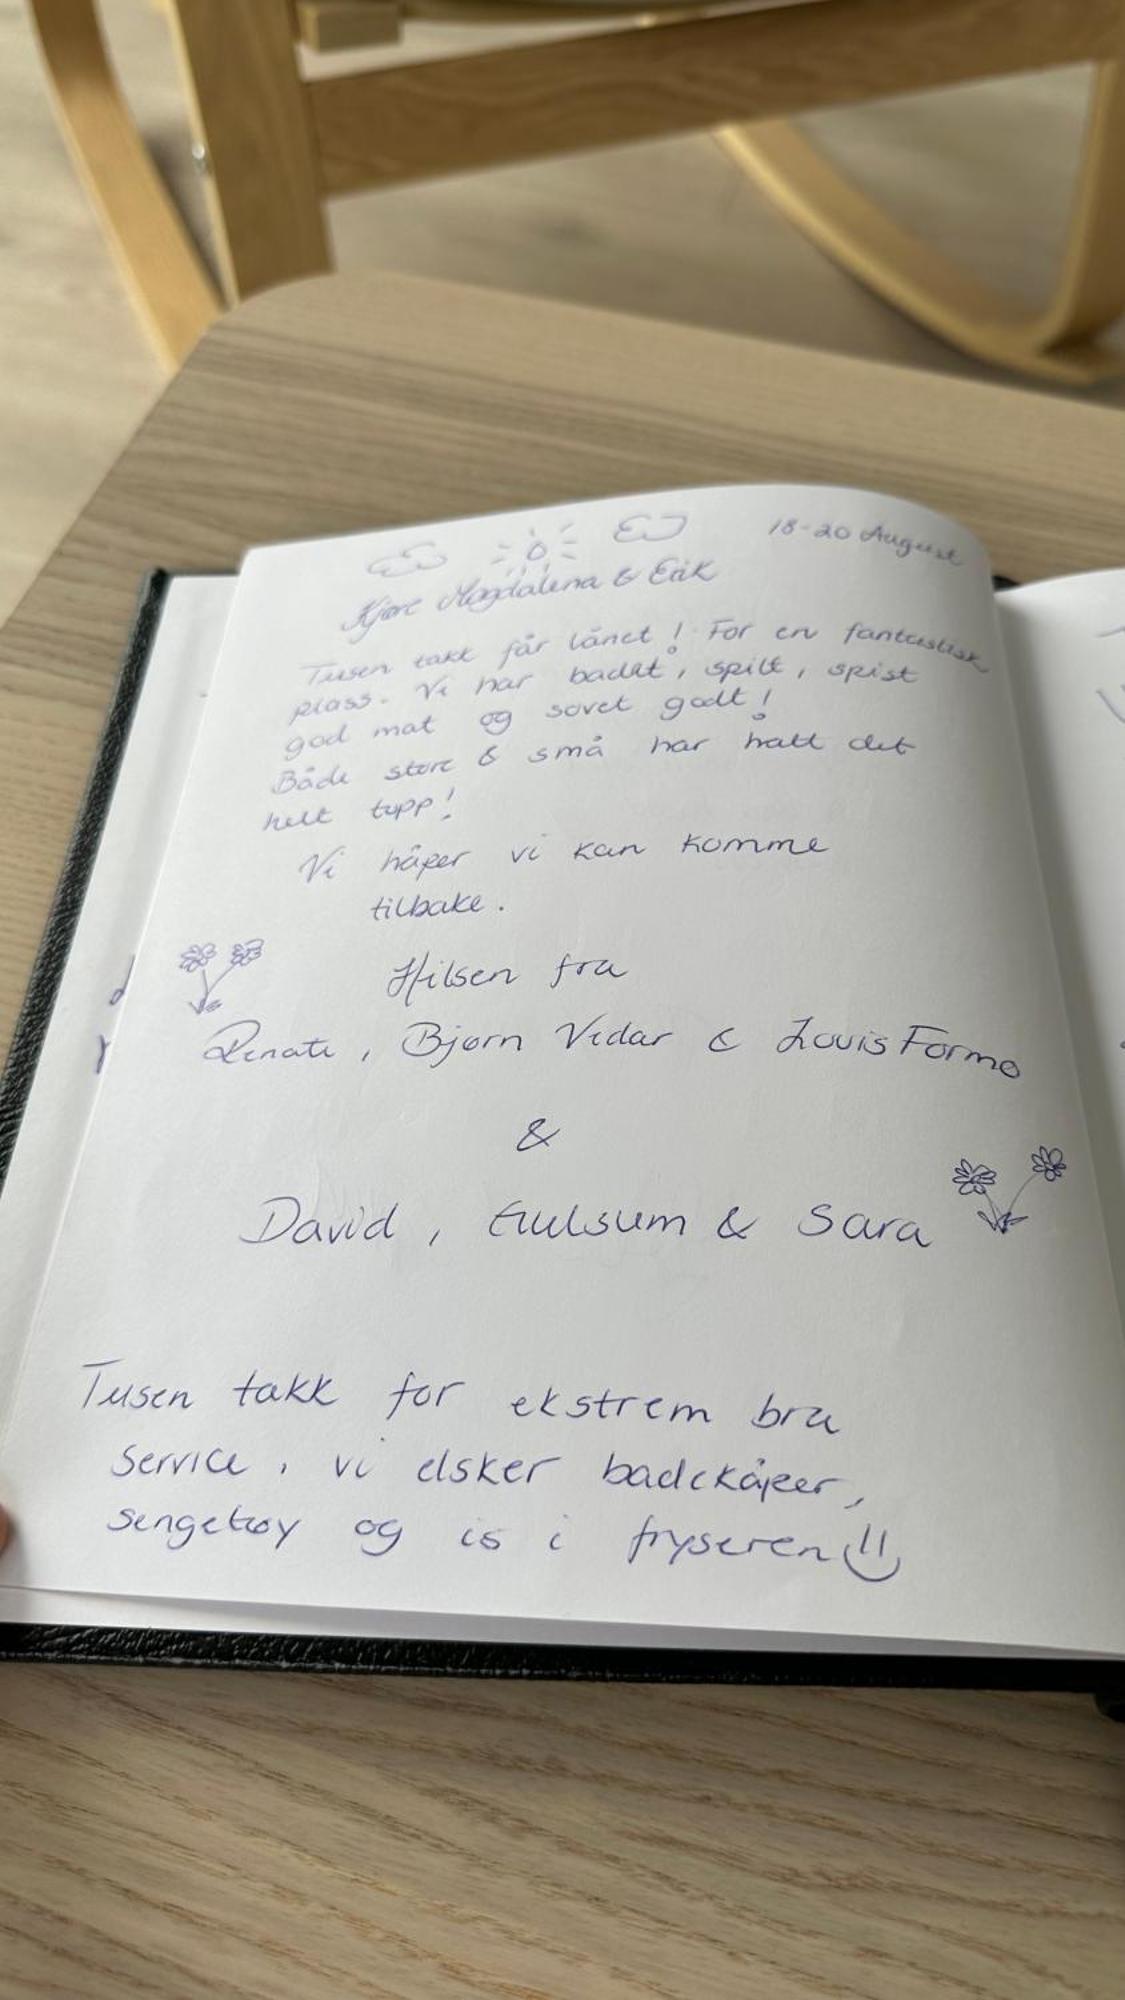 18-20 August
Kjære Magdalena & Erik
Tusen takk får lånet! For en fantastisk
plass. Vi har badet, spilt, spist
god mat og sovet godt!
Både store & små har hatt det
helt topp!
Vi håper vi kan komme
tilbake.
Hilsen fra
Renate, Bjørn Vidar & Louis Formo
&
David, Gulsum & Sara
Tusen takk for ekstrem bra
service, vi elsker badekåper,
sengetøy og is i fryseren